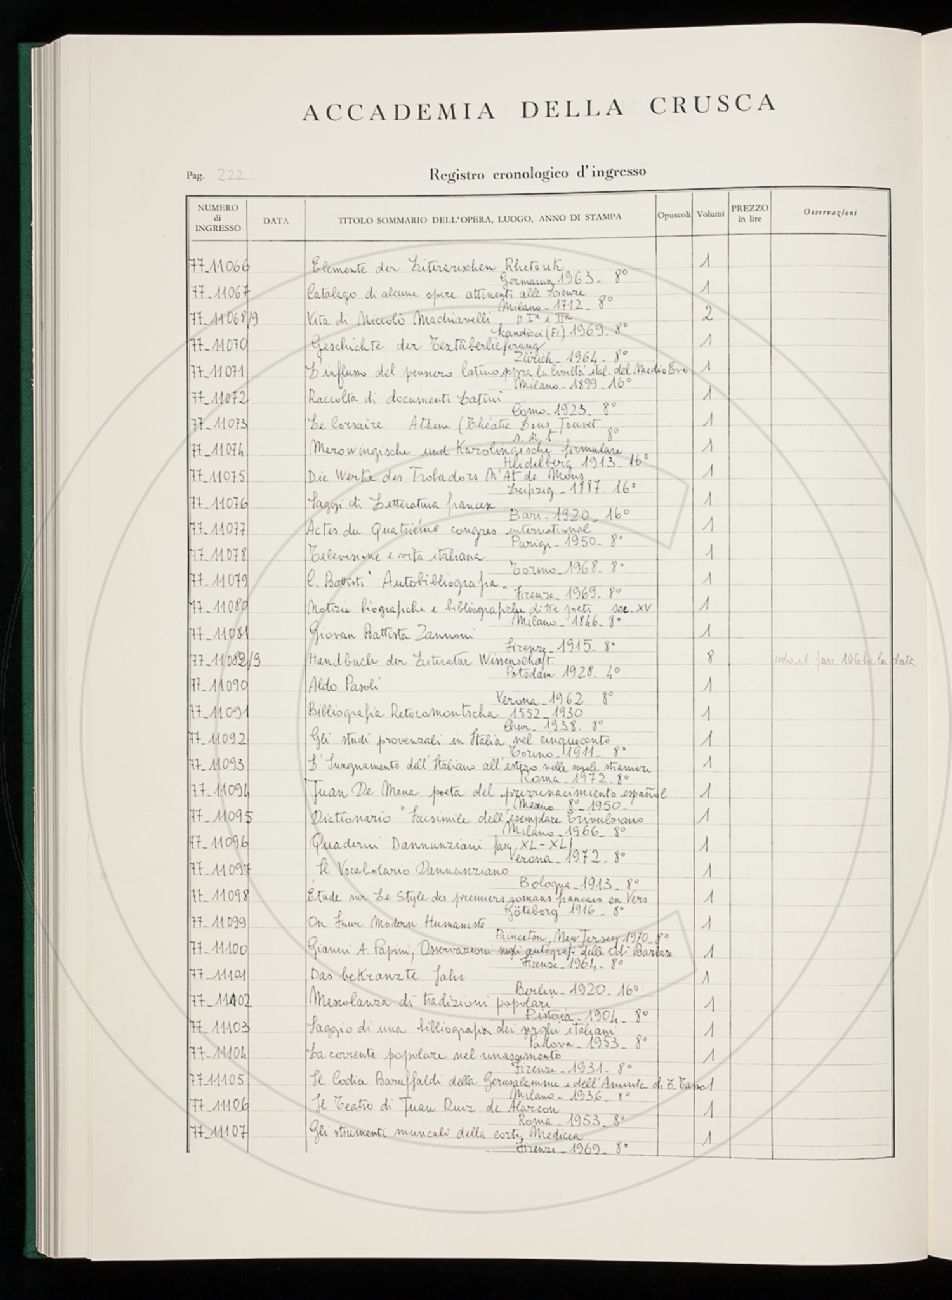 ACCADEMIA DELLA CRUSCA
Pag. 222
Registro cronologico d'ingresso
NUMERO di INGRESSO DATA TITOLO SOMMARIO DELL'OPERA, LUOGO, ANNO DI STAMPA Opuscoli Volumi PREZZO in lire Osservazioni
77_11066 Elemente der Literarischen Rhetorik 1
1963_ 8°
77_11067 Catalogo di alcune opere attinenti alle Scienze 1
Milano_ 1712_ 8°
77_11068/9 Vita di Niccolò Machiavelli p Iª e IIª 2
Scandicci (FI) 1969_ 8°
77_11070 Geschichte der Textüberlieferung 1
Zürich_ 1964_ 8°
77_11071 L'influsso del pensiero latino sopra la civiltà ital. del Medio Evo 1
Milano_ 1899_ 16°
77_11072 Raccolta di documenti Latini 1
Como_ 1923_ 8°
77_11073 Le Corsaire Athena (Théatre Louis Jouvet 1
8°
77_11074 Merowingische und Karolingische formulare 1
Heidelberg 1913_ 16°
77_11075 Die Werke des Trobadors N'At de Mons 1
Leipzig_ 1887_ 16°
77_11076 Saggi di Letteratura francese 1
Bari_ 1920_ 16°
77_11077 Actes du Quatrième congres international 1
Parigi_ 1950_ 8°
77_11078 Televisione e vita italiana 1
Torino_ 1968_ 8°
77_11079 C. Battisti "Autobibliografia" 1
Firenze_ 1969_ 8°
77_11080 Notizie biografiche e bibliografiche di tre poeti sec. XV 1
Milano_ 1846_ 8°
77_11081 Giovan Battista Zannoni 1
Firenze_ 1915_ 8°
77_11082/9 Handbuch der Literatur Wissenschaft 8 solo il fasc 106 ha la data
Potsdam 1928_ 4°
77_11090 Aldo Pasoli 1
Verona_ 1962 8°
77_11091 Bibliografia Retoromontscha 1552_1930 1
Chur_ 1938_ 8°
77_11092 Gli studi provenzali in Italia nel cinquecento 1
Torino_ 1911_ 8°
77_11093 L'Insegnamento dell'Italiano all'estero nelle scuole straniere 1
Roma_ 1972_ 8°
77_11094 Juan De Mena poeta del prerrenacimiento español 1
Mexico 8°_ 1950_
77_11095 Dictionario "Facsimile dell'esemplare Trivulziano 1
Milano_ 1966_ 8°
77_11096 Quaderni Dannunziani fasc. XL-XLI 1
Verona_ 1972_ 8°
77_11097 Il Vocabolario Dannunziano 1
Bologna_ 1913_ 8°
77_11098 Étude sur Le Style des premiers romans francais en Vers 1
Göteborg 1916_ 8°
77_11099 On Four Modern Humanists 1
Princeton, New Jersey 1970_ 8°
77_11100 Gianni A. Papini, Osservazioni sugli autografi delle Odi Barbare 1
Firenze_ 1964_ 8°
77_11101 Das bekranzte Jahr 1
Berlin_ 1920_ 16°
77_11102 Mescolanza di tradizioni popolari 1
Pistoia_ 1904_ 8°
77_11103 Saggio di una bibliografia dei gerghi italiani 1
Padova_ 1953_ 8°
77_11104 La corrente popolare nel rinascimento 1
Firenze_ 1931_ 8°
77_11105 Il Codice Baruffaldi della Gerusalemme e dell'Aminta di T. Tasso 1
Milano_ 1936_ 8°
77_11106 Il Teatro di Juan Ruiz de Alarcon 1
Roma_ 1953_ 8°
77_11107 Gli strumenti musicali della corte Medicea 1
Firenze_ 1969_ 8°